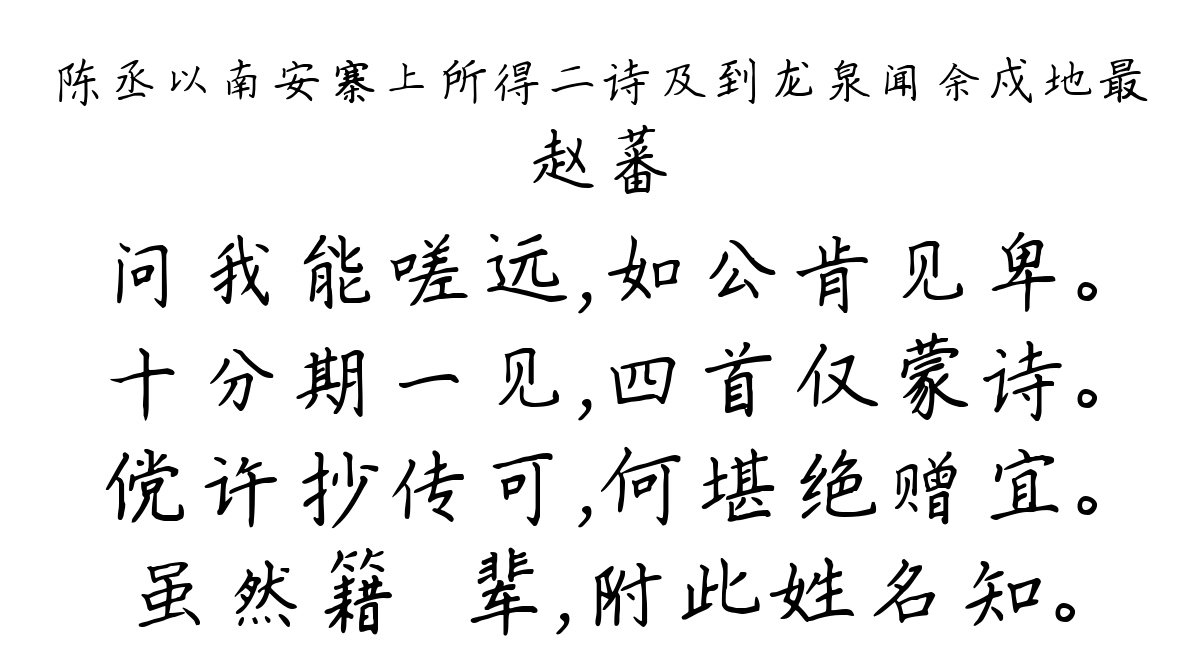 陈丞以南安寨上所得二诗及到龙泉闻余戍地最
赵蕃
问我能嗟远,如公肯见卑。
十分期一见,四首仅蒙诗。
傥许抄传可,何堪绝赠宜。
虽然籍 辈,附此姓名知。